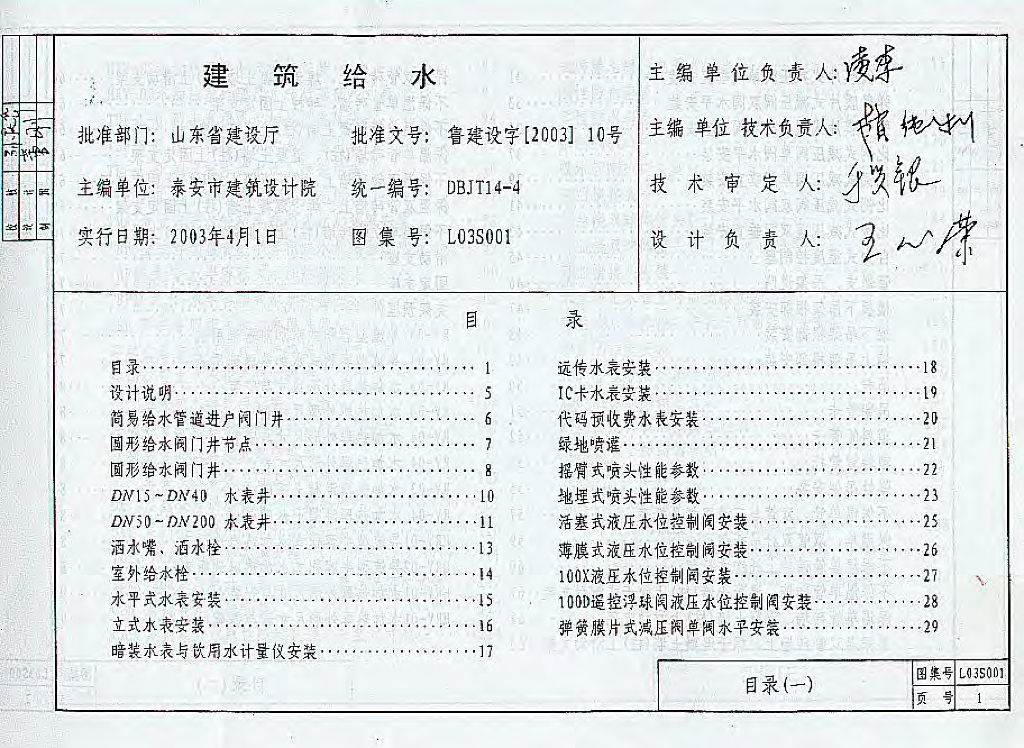 建筑给水
批准部门: 山东省建设厅 批准文号: 鲁建设字[2003] 10号
主编单位: 泰安市建筑设计院 统一编号: DBJT14-4
实行日期: 2003年4月1日 图集号: L03S001
主编单位负责人:
主编单位技术负责人:
技术审定人:
设计负责人: 王心荣
目录
目录 1
设计说明 5
简易给水管道进户阀门井 6
圆形给水阀门井节点 7
圆形给水阀门井 8
DN15~DN40 水表井 10
DN50~DN200 水表井 11
洒水嘴、洒水栓 13
室外给水栓 14
水平式水表安装 15
立式水表安装 16
暗装水表与饮用水计量仪安装 17
远传水表安装 18
IC卡水表安装 19
代码预收费水表安装 20
绿地喷灌 21
摇臂式喷头性能参数 22
地埋式喷头性能参数 23
活塞式液压水位控制阀安装 25
薄膜式液压水位控制阀安装 26
100X液压水位控制阀安装 27
100D遥控浮球阀液压水位控制阀安装 28
弹簧膜片式减压阀单阀水平安装 29
目录(一)
图集号 L03S001
页号 1